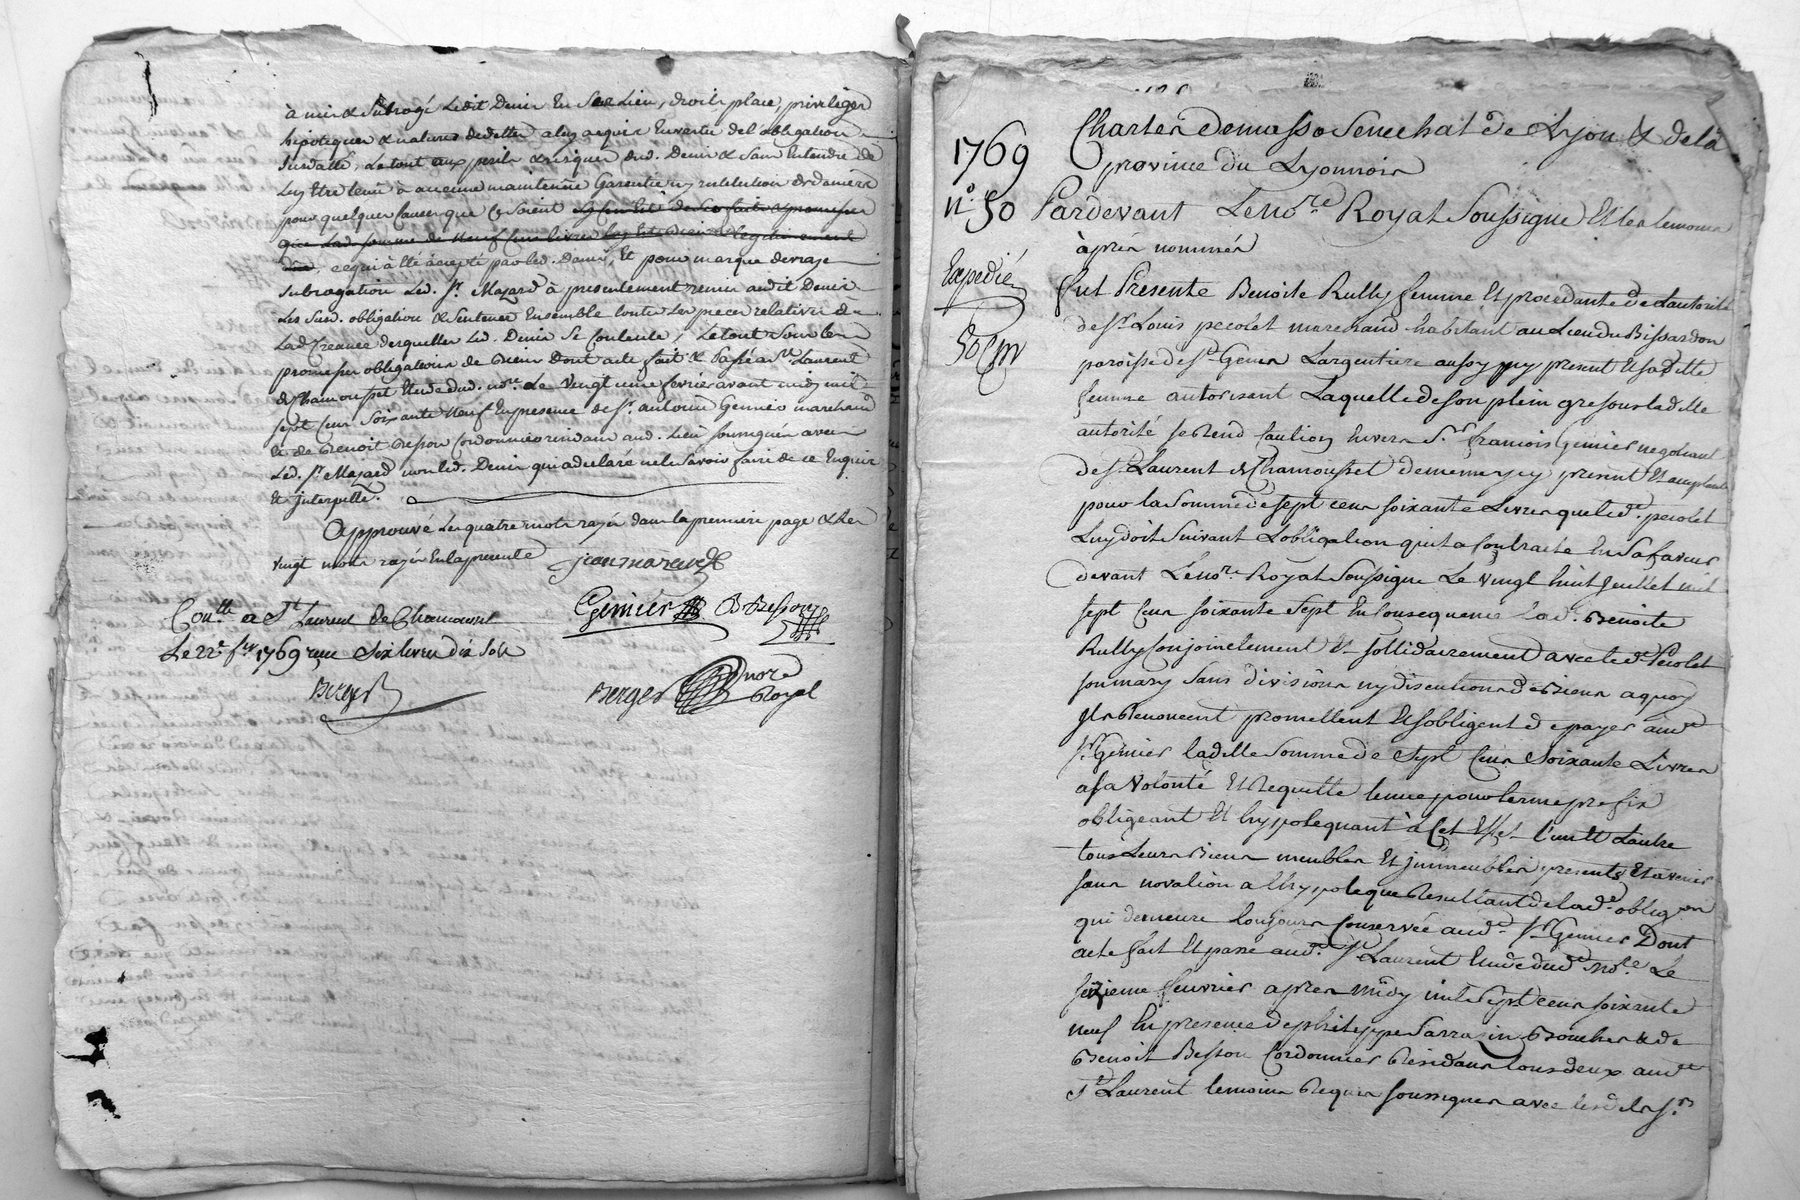 à mis & subrogé ledit Denis En son Lieu, droits, place, privileges
hipoteques & nature de dettes a luy acquis En vertu de l'obligation
susdatté, Le tout aux perils & risques dud. Denis & sans Entendre de
Luy Etre tenu à aucune maintenüe Garentie ny restitution de deniers
pour quelques Causes que Ce soient
que Lad. somme de Neuf Cens livres luy Est Dûe & legitimement
dûe, ce qui à été accepté par led. Denis, Et pour marque de vraye
subrogation Led. Sr. Mazard à presentement remis audit Denis
Les Susd. obligation & Sentences Ensemble toutes les pieces relatives à
Lad. Creance desquelles Led. Denis Se Contente, Le tout Sous les
promesses obligations de Biens Dont acte fait & Passé a St. Laurent
de Chamousset Etude dud. nore. Le Vingt une fevrier avant midy mil
sept Cens Soixante Neuf En presence de Sr. antoine Genier marchand
& de Benoit Besson Cordonnier residans aud. Lieu soussignés avec
Led. Sr. Mazard non led. Denis qui a declaré ne le Savoir faire de ce Enquis
Et Interpellé.
Approuvé Les quatre mots rayés dans la premiere page & Les
vingt mots rayés En la presente
Genier B Besson
Conlle a St Laurent de Chamousset
Le 22e fer 1769 reçu Six livres dix Sols
Berger
Berger nore
Royal
1769
n.° 50
Expedié
Charles Demasso Senechal de Lyon & de la
province du Lyonnois
Pardevant Le Nore. Royal Soussigné Et les temoins
après nommés
fut Presente Benoite Rully femme Et procedante de L'autorité
de Sr. Louis pecolet marchand habitant au Lieu du Bissardon
paroisse de St. Genis Largentiere aussy icy present Et sadette
femme autorisant Laquelle de son plein gre sous ladette
autorité se Rend Caution Envers Sr. francois Genier negotiant
de St. Laurent de Chamousset demême icy present Et acceptant
pour la Somme de sept cens soixante Livres que led. pecolet
Luy doit Suivant L'obligation qu'il a Contracté En Sa faveur
devant Le nore. Royal Soussigné Le vingt huit Juillet mil
sept Cens soixante Sept En Consequence lad. Benoite
Rully Conjointement Et sollidairement avec led. Pecolet
son mary Sans division ny discution de Biens a quoy
Ils Renoncent promettent Et s'obligent de payer aud.
Sr. Genier ladette Somme de Sept Cens Soixante Livres
a sa Volonté Et Requette tenue pour terme prefix
obligeant Et hypotequant à Cet Effet l'un Et L'autre
tous Leurs Biens meubles Et jmmeubles presents Et avenir
sans novation a l'hypoteque Resultant de lad. obligon
qui demeure toujours Conservée aud. Sr. Genier Dont
acte fait Et passé aud. St. Laurent Etude dud. Nore. Le
seizieme feuvrier après Midy mil Sept cens soixante
neuf En presence de philippe Sarrazin Boucher & de
Benoit Besson Cordonnier Residans tous deux aud.
St. Laurent temoins Requis soussignés avec lesdits Srs